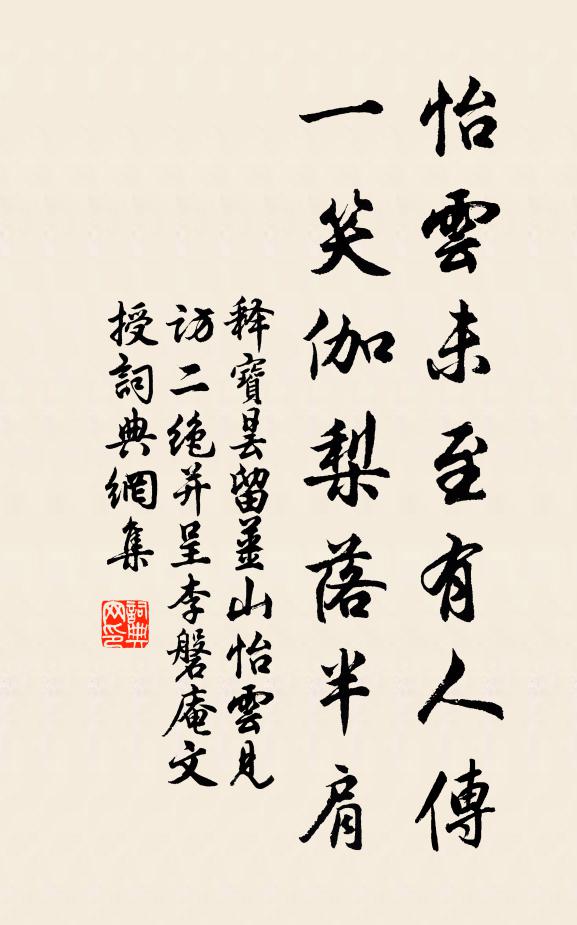 怡雲未至有人傳
一笑伽梨落半肩
释寶曇留薑山怡雲見
访二绝并呈李磐庵文
授詞典網集
詞典网印